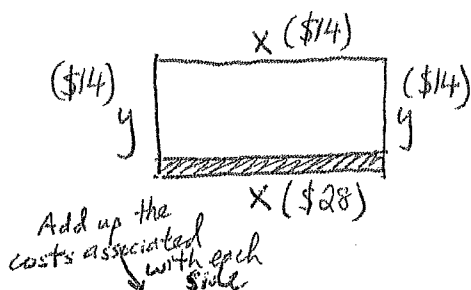 x ($14)
($14)
y
($14)
y
x ($28)
Add up the
costs associated
with each
side